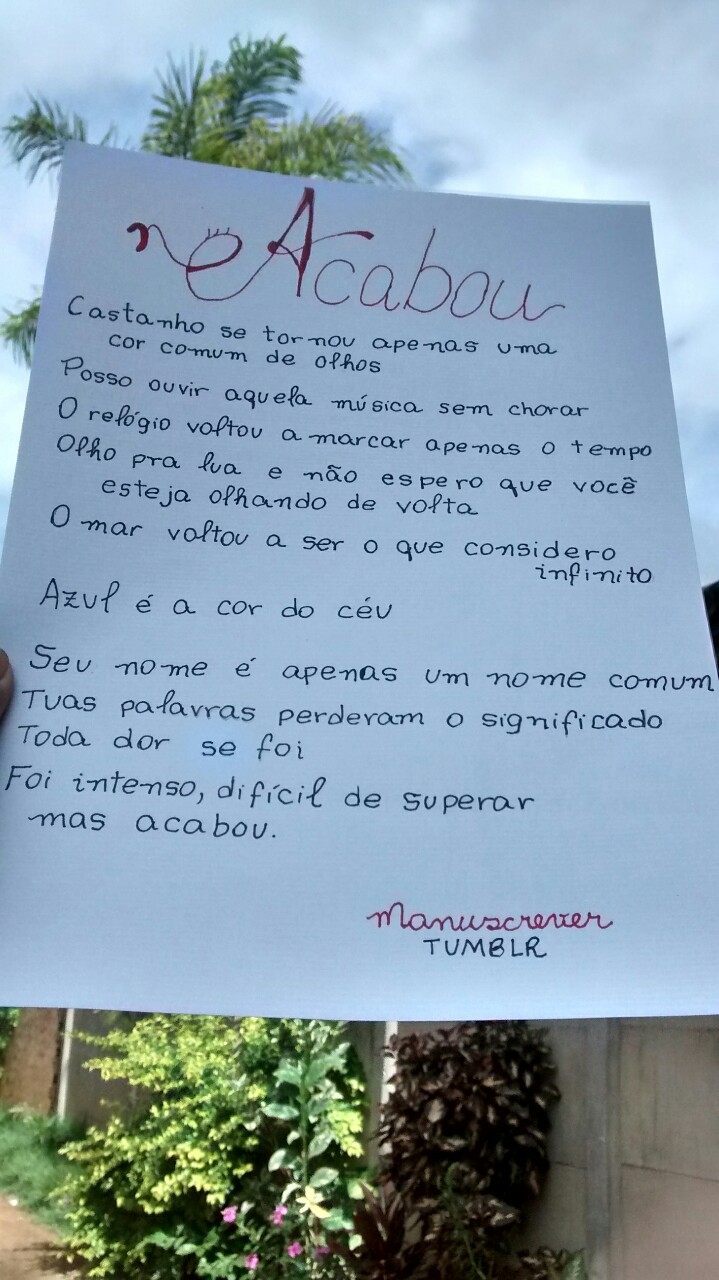 Acabou
Castanho se tornou apenas uma
cor comum de olhos
Posso ouvir aquela música sem chorar
O relógio voltou a marcar apenas o tempo
Olho pra lua e não espero que você
esteja olhando de volta
O mar voltou a ser o que considero
infinito
Azul é a cor do céu
Seu nome é apenas um nome comum
Tuas palavras perderam o significado
Toda dor se foi
Foi intenso, difícil de superar
mas acabou.
manuscrever
TUMBLR